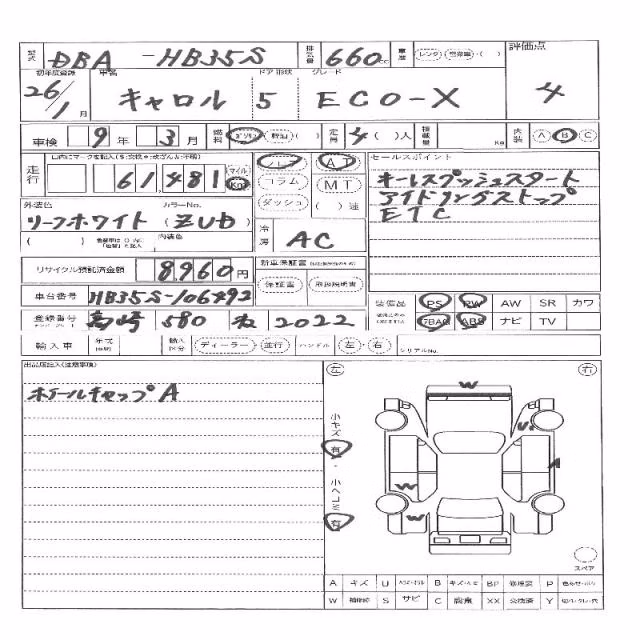 型式 DBA-HB35S 排気量 660cc 車歴 レンタ・営業車・( ) 評価点
初年度登録 車名 ドア 形状 グレード
26/1月 キャロル 5 ECO-X 4
車検 9年 3月 燃料 ガソリン・軽油( ) 定員 4( )人 積載量 Kg 内装 A B C
走行 61,481 マイル Km フロア AT セールスポイント
コラム MT キーレスプッシュスタート
ダッシュ ( )速 アイドリングストップ
外装色 カラーNo. ETC
リーフホワイト (ZUD)
( ) 内装色 冷房 AC
リサイクル預託済金額 8,960円 新車保証書
保証書 取扱説明書
車台番号 HB35S-106492 装備品 PS PW AW SR カワ
登録番号 高崎 580 2022 ABS ナビ TV
輸入車 年式 輸入区分 ディーラー・並行 ハンドル 左・右 シリアルNo.
出品店記入(注意事項) 左 右
ホイールキャップA
W
小キズ 有
A
W
小ヘコミ 有
W
スペア
A キズ U B BP 修理要 P
W 補修跡 S サビ C 腐食 XX 交換済 Y